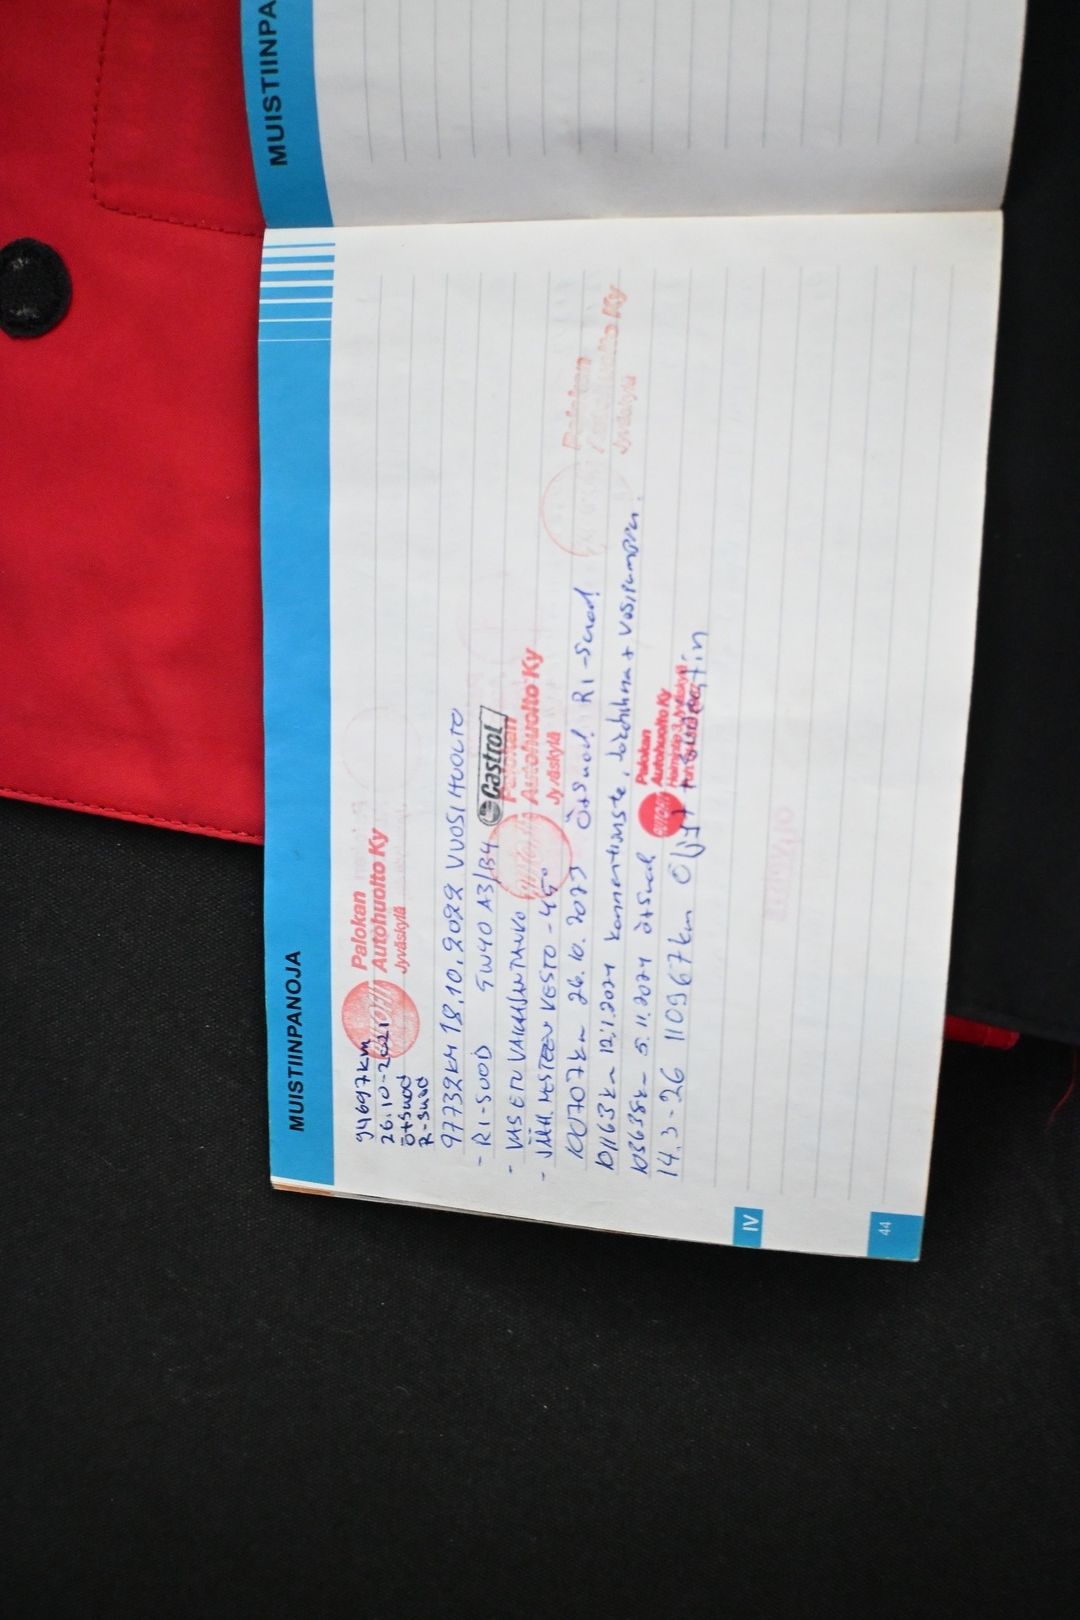 MUISTIINPA
MUISTIINPANOJA
94697km
26.10-2021
ötsuod
R-suod
Palokan
Autohuolto Ky
Jyväskylä
97732KM 18.10.2022 VUOSIHUOLTO
- RI-SUOD 5W40 A3/B4 Castrol
- VAS ETU VAKAAJANTANKO
- JÄÄH. NESTEEN KESTO -45°
Palokan
Autohuolto Ky
Jyväskylä
100707km 26.10.2023 ÖtSuod! RI-Suod!
Palokan
Autohuolto Ky
Jyväskylä
101163km 12.1.2024 + vesipumppu.
103638km 5.11.2024 ötsuod
Palokan
Autohuolto Ky
14.3-26 110967km Öljyt + suodatin
IV
44